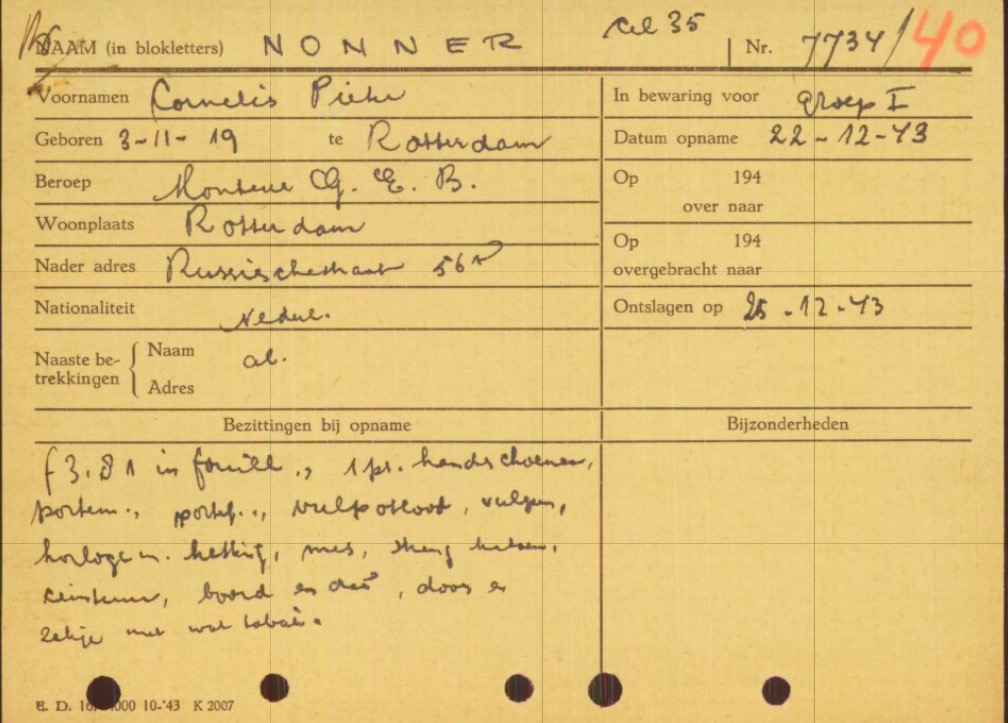 NAAM (in blokletters) NONNER cel 35 Nr. 7734/40
Voornamen Cornelis Pieter In bewaring voor groep I
Geboren 3-11-19 te Rotterdam Datum opname 22-12-43
Beroep Monteur G. E. B. Op 194
over naar
Woonplaats Rotterdam
Op 194
Nader adres Russischestraat 56 overgebracht naar
Nationaliteit Nederl. Ontslagen op 25-12-43
Naaste be-trekkingen Naam al.
Adres
Bezittingen bij opname Bijzonderheden
f 3.81 in fouill., 1 pr. handschoenen,
portem., portef., vulpotlood, vulpen,
horloge m. ketting, mes,
ceintuur, boord en das, doos en
zakje met wat tabak.
E. D. 000 10-'43 K 2007